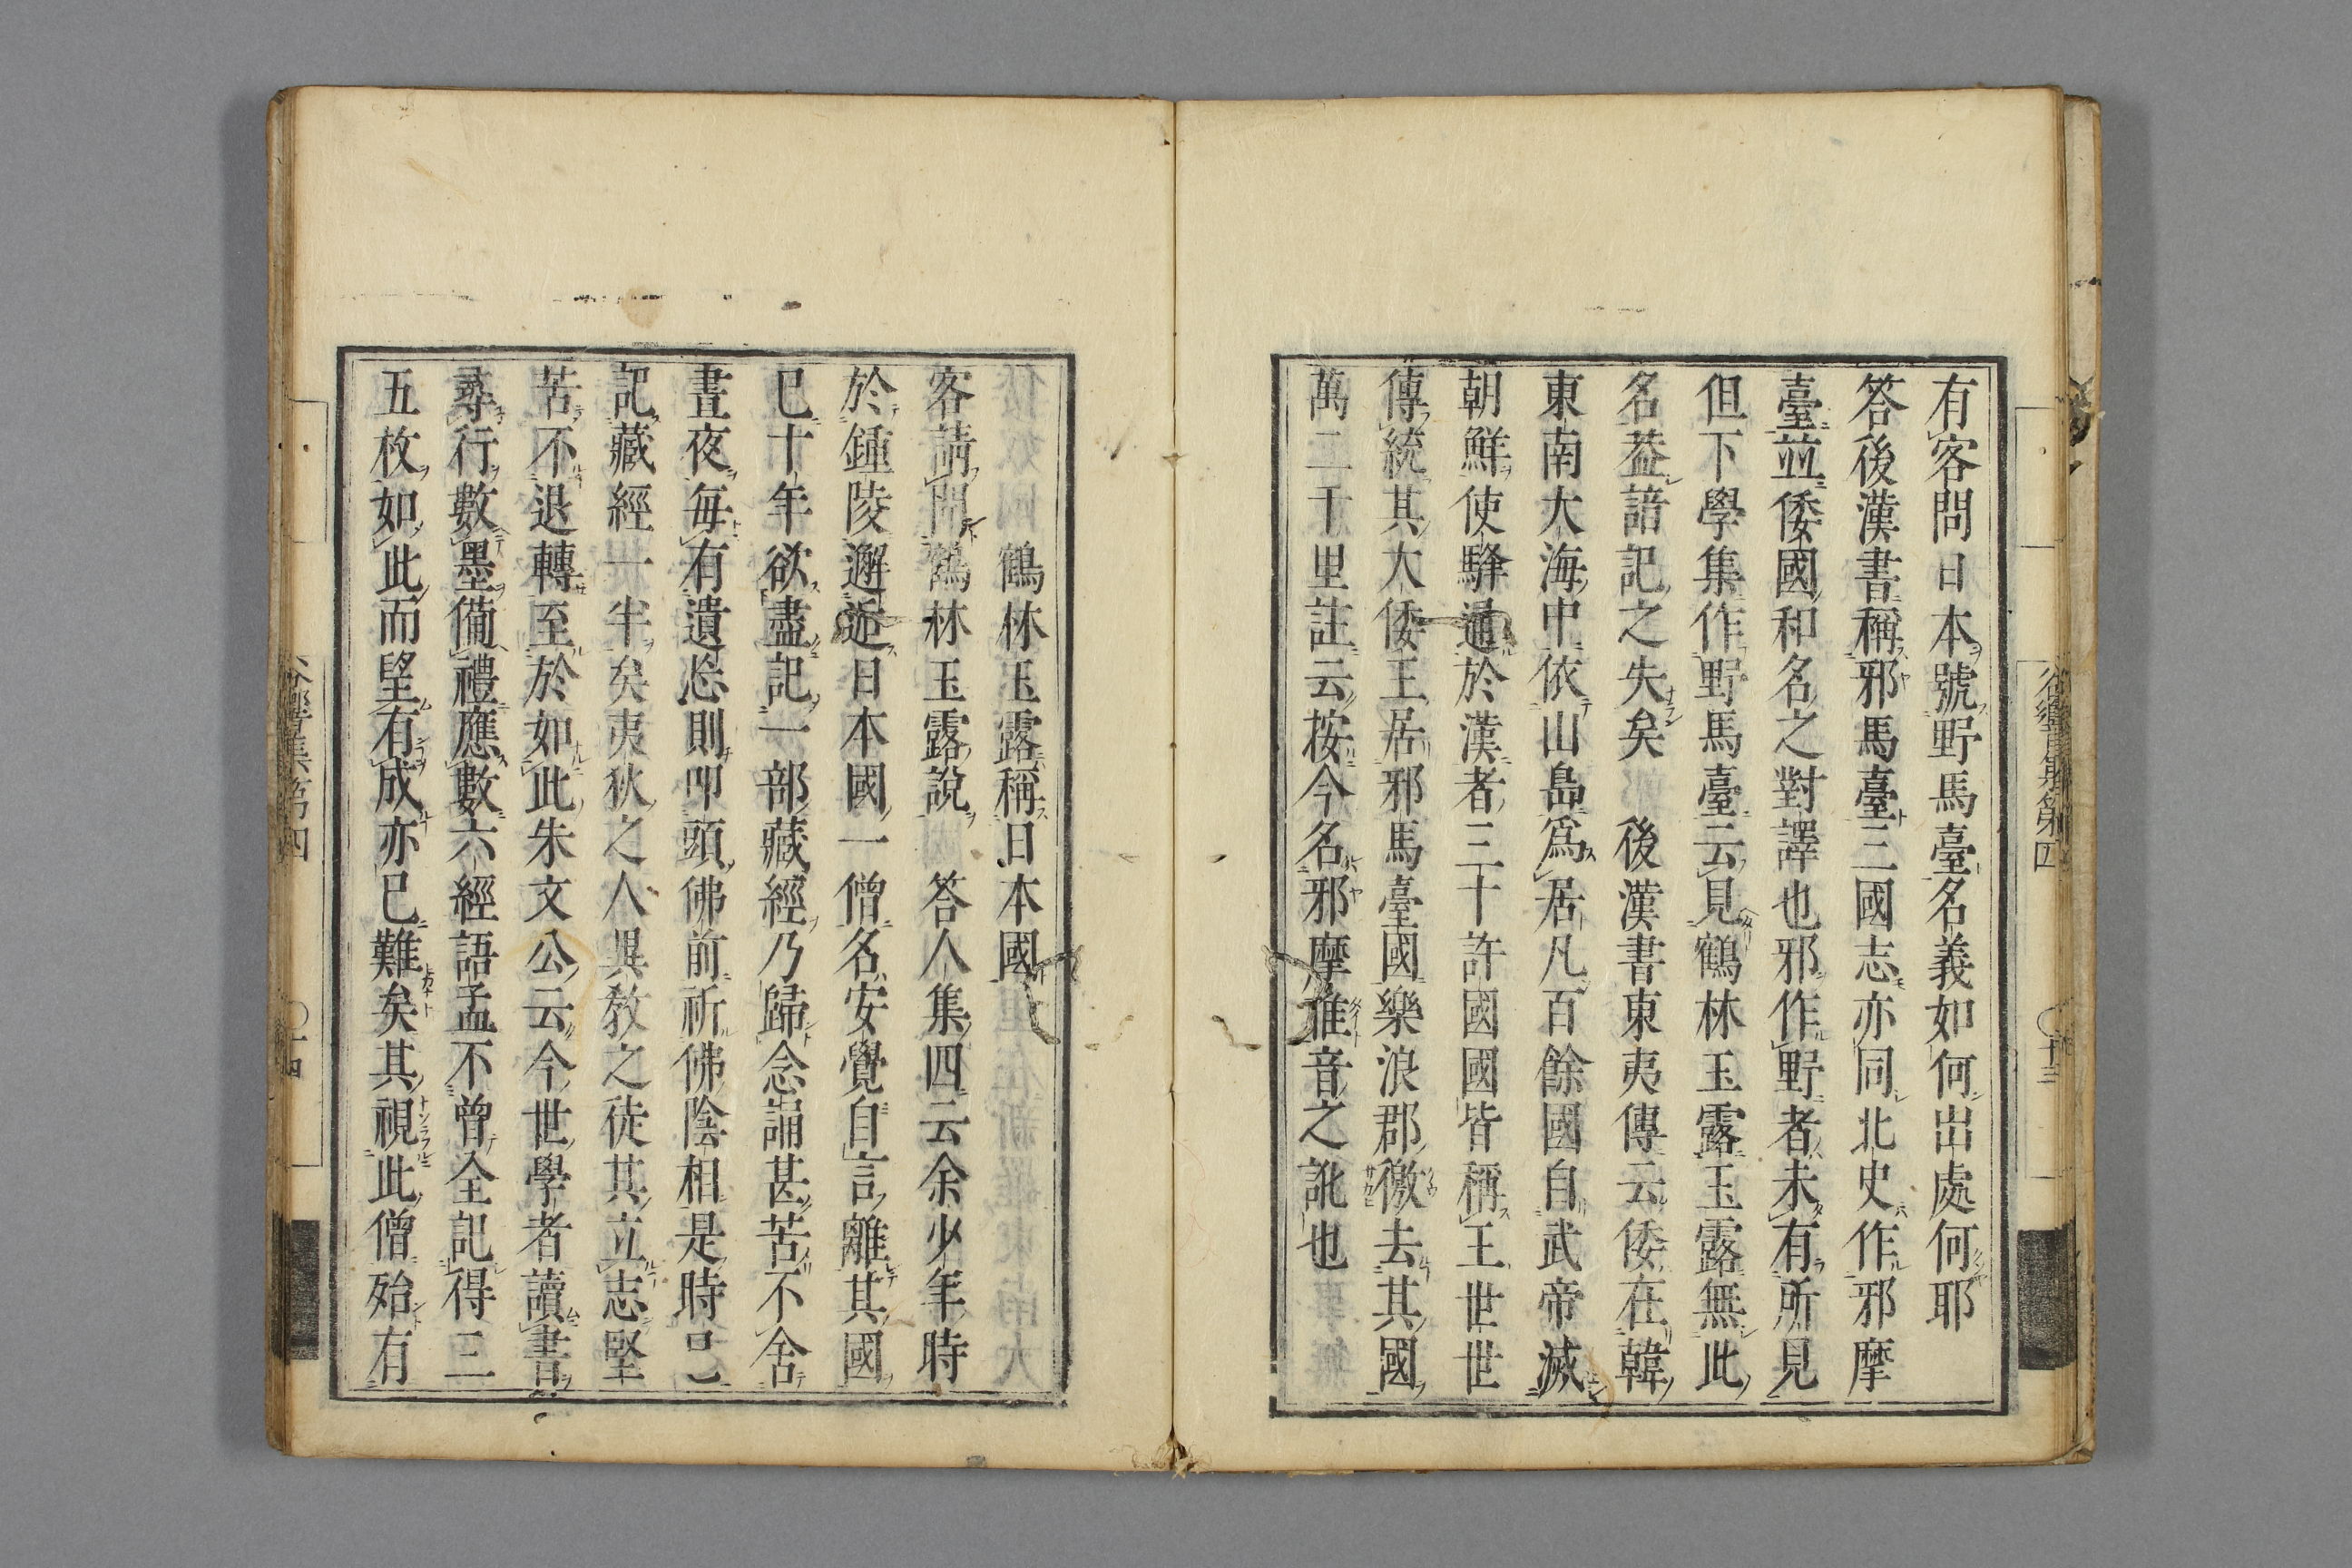 有客問日本號野馬臺名義如何出處何耶
答後漢書稱邪馬臺三國志亦同北史作邪摩
臺並倭國和名之對譯也邪作野者未有所見
但下學集作野馬臺云見鶴林玉露玉露無此
名葢諳記之失矣 後漢書東夷傳云倭在韓
東南大海中依山島爲居凡百餘國自武帝滅
朝鮮使驛通於漢者三十許國國皆稱王世世
傳統其大倭王居邪馬臺國樂浪郡徼去其國
萬二千里註云按今名邪摩惟音之訛也
谷響集第四
〇十三
鶴林玉露稱日本國
客請問鶴林玉露說 答人集四云余少年時
於鍾陵邂逅日本國一僧名安覺自言離其國
已十年欲盡記一部藏經乃歸念誦甚苦不舍
晝夜每有遺忘則叩頭佛前祈佛陰相是時已
記藏經一半矣夷狄之人異敎之徒其立志堅
苦不退轉至於如此朱文公云今世學者讀書
尋行數墨備禮應數六經語孟不曾全記得三
五枚如此而望有成亦已難矣其視此僧殆有
谷響集第四
〇十四